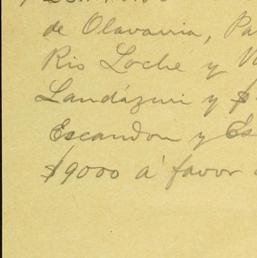 de Olavarria, Pa
Rio Loche y V
Landázuri y $
Escandon y Es
$9000 á favor